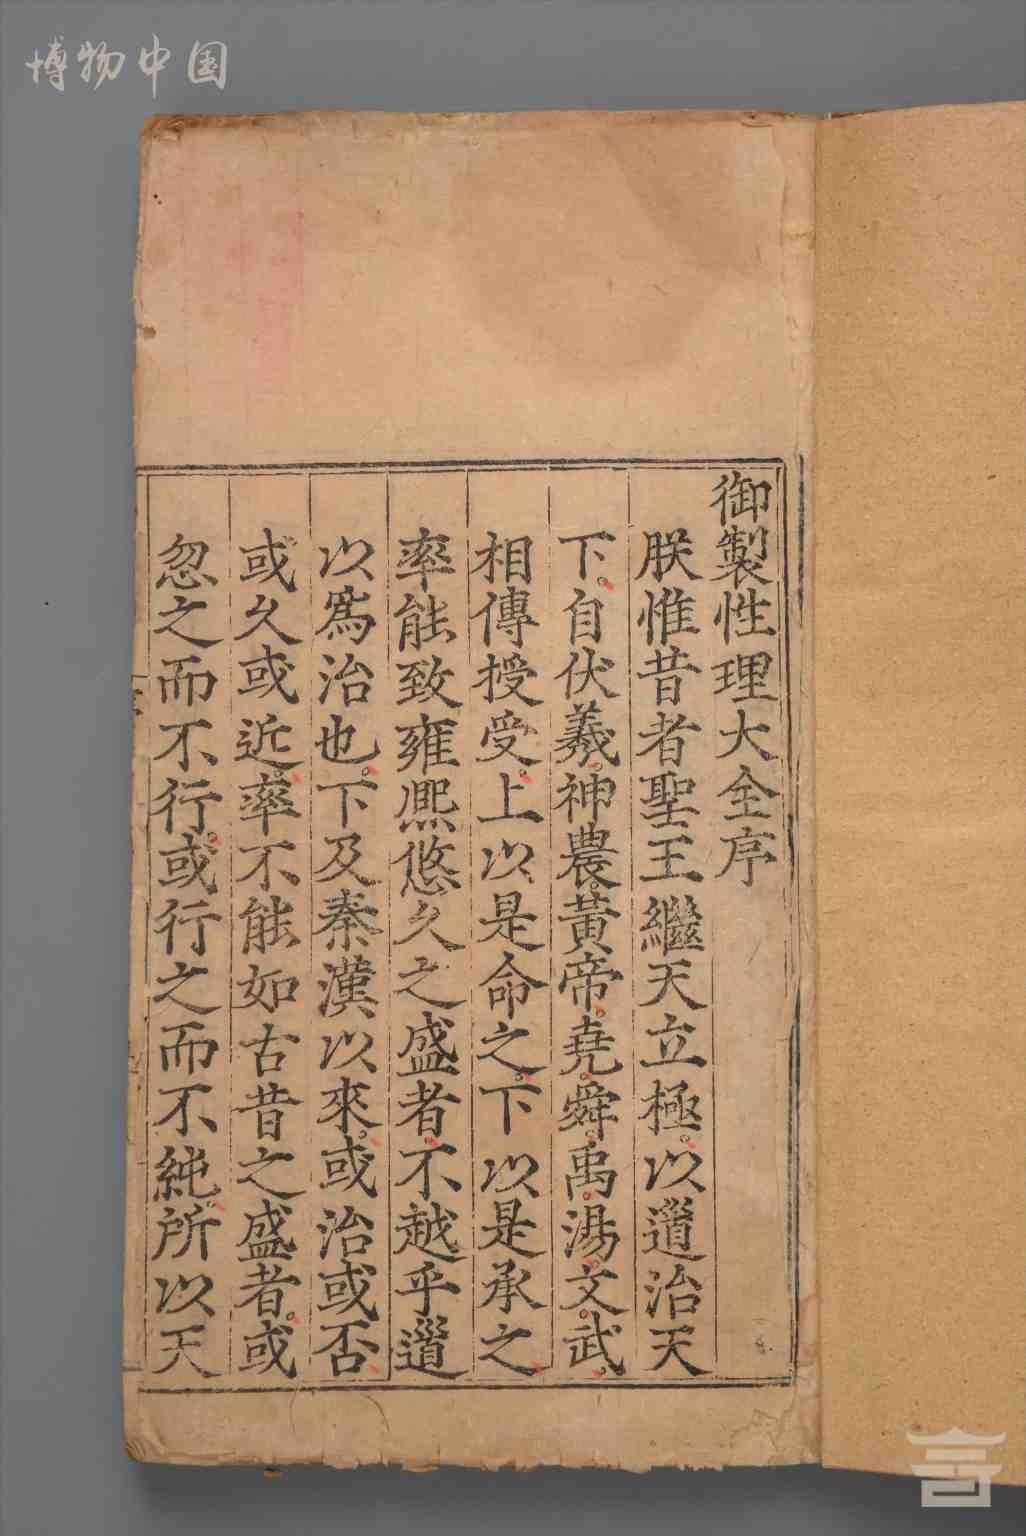 博物中国
御製性理大全序
朕惟昔者聖王繼天立極以道治天
下自伏羲神農黃帝堯舜禹湯文武
相傳授受上以是命之下以是承之
率能致雍熙悠久之盛者不越乎道
以為治也下及秦漢以來或治或否
或久或近率不能如古昔之盛者或
忽之而不行或行之而不純所以天